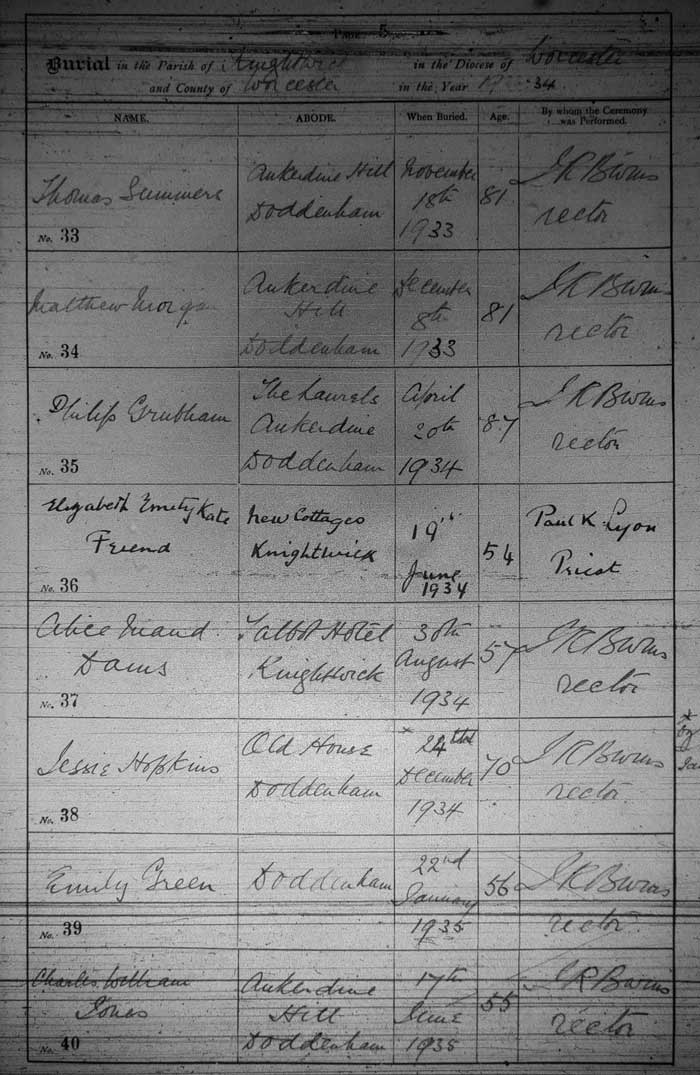 Page 5
Burial in the Parish of Knightwick in the Diocese of Worcester
and County of Worcester in the Year 19 34
NAME. ABODE. When Buried. Age. By whom the Ceremony was Performed.
Thomas Summers
No. 33
Ankerdine Hill
Doddenham
November
18th
1933
81
rector
Matthew Morgan
No. 34
Ankerdine
Hill
Doddenham
December
8th
1933
81
rector
Philip Grubham
No. 35
The Laurels
Ankerdine
Doddenham
April
20th
1934
87
rector
Elizabeth Emily Kate
Friend
No. 36
New Cottages
Knightwick
19th
June
1934
54
Paul K. Lyon
Priest
Alice Maud
No. 37
Talbot Hotel
Knightwick
30th
August
1934
57
rector
Jessie Hopkins
No. 38
Old House
Doddenham
* 24
December
1934
70
rector
*
by
Emily Green
No. 39
Doddenham
22nd
January
1935
56
rector
Charles William
Jones
No. 40
Ankerdine
Hill
Doddenham
17th
June
1935
55
rector